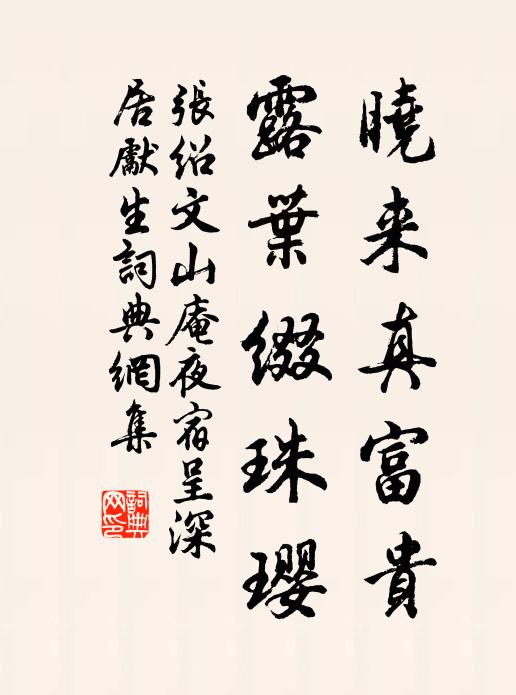 曉来真富貴
露葉綴珠瓔
張紹文山庵夜宿呈深
居獻生詞典網集
詞典
网印